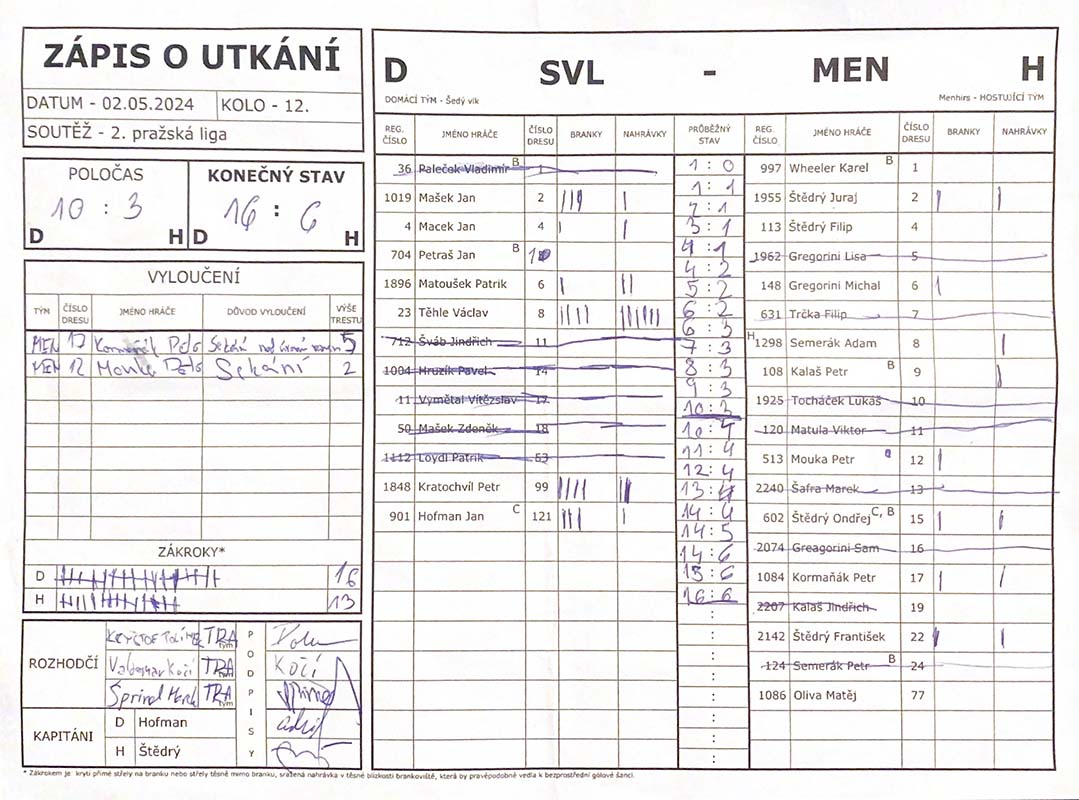 ZÁPIS O UTKÁNÍ
DATUM - 02.05.2024 KOLO - 12.
SOUTĚŽ - 2. pražská liga
POLOČAS KONEČNÝ STAV
10 : 3 16 : 6
D H D H
VYLOUČENÍ
TÝM ČÍSLO DRESU JMÉNO HRÁČE DŮVOD VYLOUČENÍ VÝŠE TRESTU
MEN 17 Kormaňák Petr Sekání nad úrovní ramen 5
MEN 12 Mouka Petr Sekání 2
ZÁKROKY*
D 16
H 13
ROZHODČÍ
TRA tým
Valdemar Kočí TRA tým Kočí
TRA tým
PODPISY
KAPITÁNI
D Hofman
H Štědrý
D SVL - MEN H
DOMÁCÍ TÝM - Šedý vlk Menhirs - HOSTUJÍCÍ TÝM
REG. ČÍSLO JMÉNO HRÁČE ČÍSLO DRESU BRANKY NAHRÁVKY PRŮBĚŽNÝ STAV REG. ČÍSLO JMÉNO HRÁČE ČÍSLO DRESU BRANKY NAHRÁVKY
36 Paleček Vladimír B 1
1019 Mašek Jan 2
4 Macek Jan 4
704 Petraš Jan B
1896 Matoušek Patrik 6
23 Těhle Václav 8
712 Šváb Jindřich 11
1004 Hruzík Pavel 14
11 Vymětal Vítězslav 17
50 Mašek Zdeněk 18
1112 Loydl Patrik 53
1848 Kratochvíl Petr 99
901 Hofman Jan C 121
1 : 0
1 : 1
2 : 1
3 : 1
4 : 1
4 : 2
5 : 2
6 : 2
6 : 3
7 : 3
8 : 3
9 : 3
10 : 3
10 : 4
11 : 4
12 : 4
13 : 4
14 : 4
14 : 5
14 : 6
15 : 6
16 : 6
:
:
:
:
:
:
997 Wheeler Karel B 1
1955 Štědrý Juraj 2
113 Štědrý Filip 4
1962 Gregorini Lisa 5
148 Gregorini Michal 6
631 Trčka Filip 7
H 1298 Semerák Adam 8
108 Kalaš Petr B 9
1925 Tocháček Lukáš 10
120 Matula Viktor 11
513 Mouka Petr 12
2240 Šafra Marek 13
602 Štědrý Ondřej C, B 15
2074 Greagorini Sam 16
1084 Kormaňák Petr 17
2207 Kalaš Jindřich 19
2142 Štědrý František 22
124 Semerák Petr B 24
1086 Oliva Matěj 77
* Zákrokem je krytí přímé střely na branku nebo střely těsně mimo branku, sražená nahrávka v těsné blízkosti brankoviště, která by pravěpodobně vedla k bezprostřední gólové šanci.